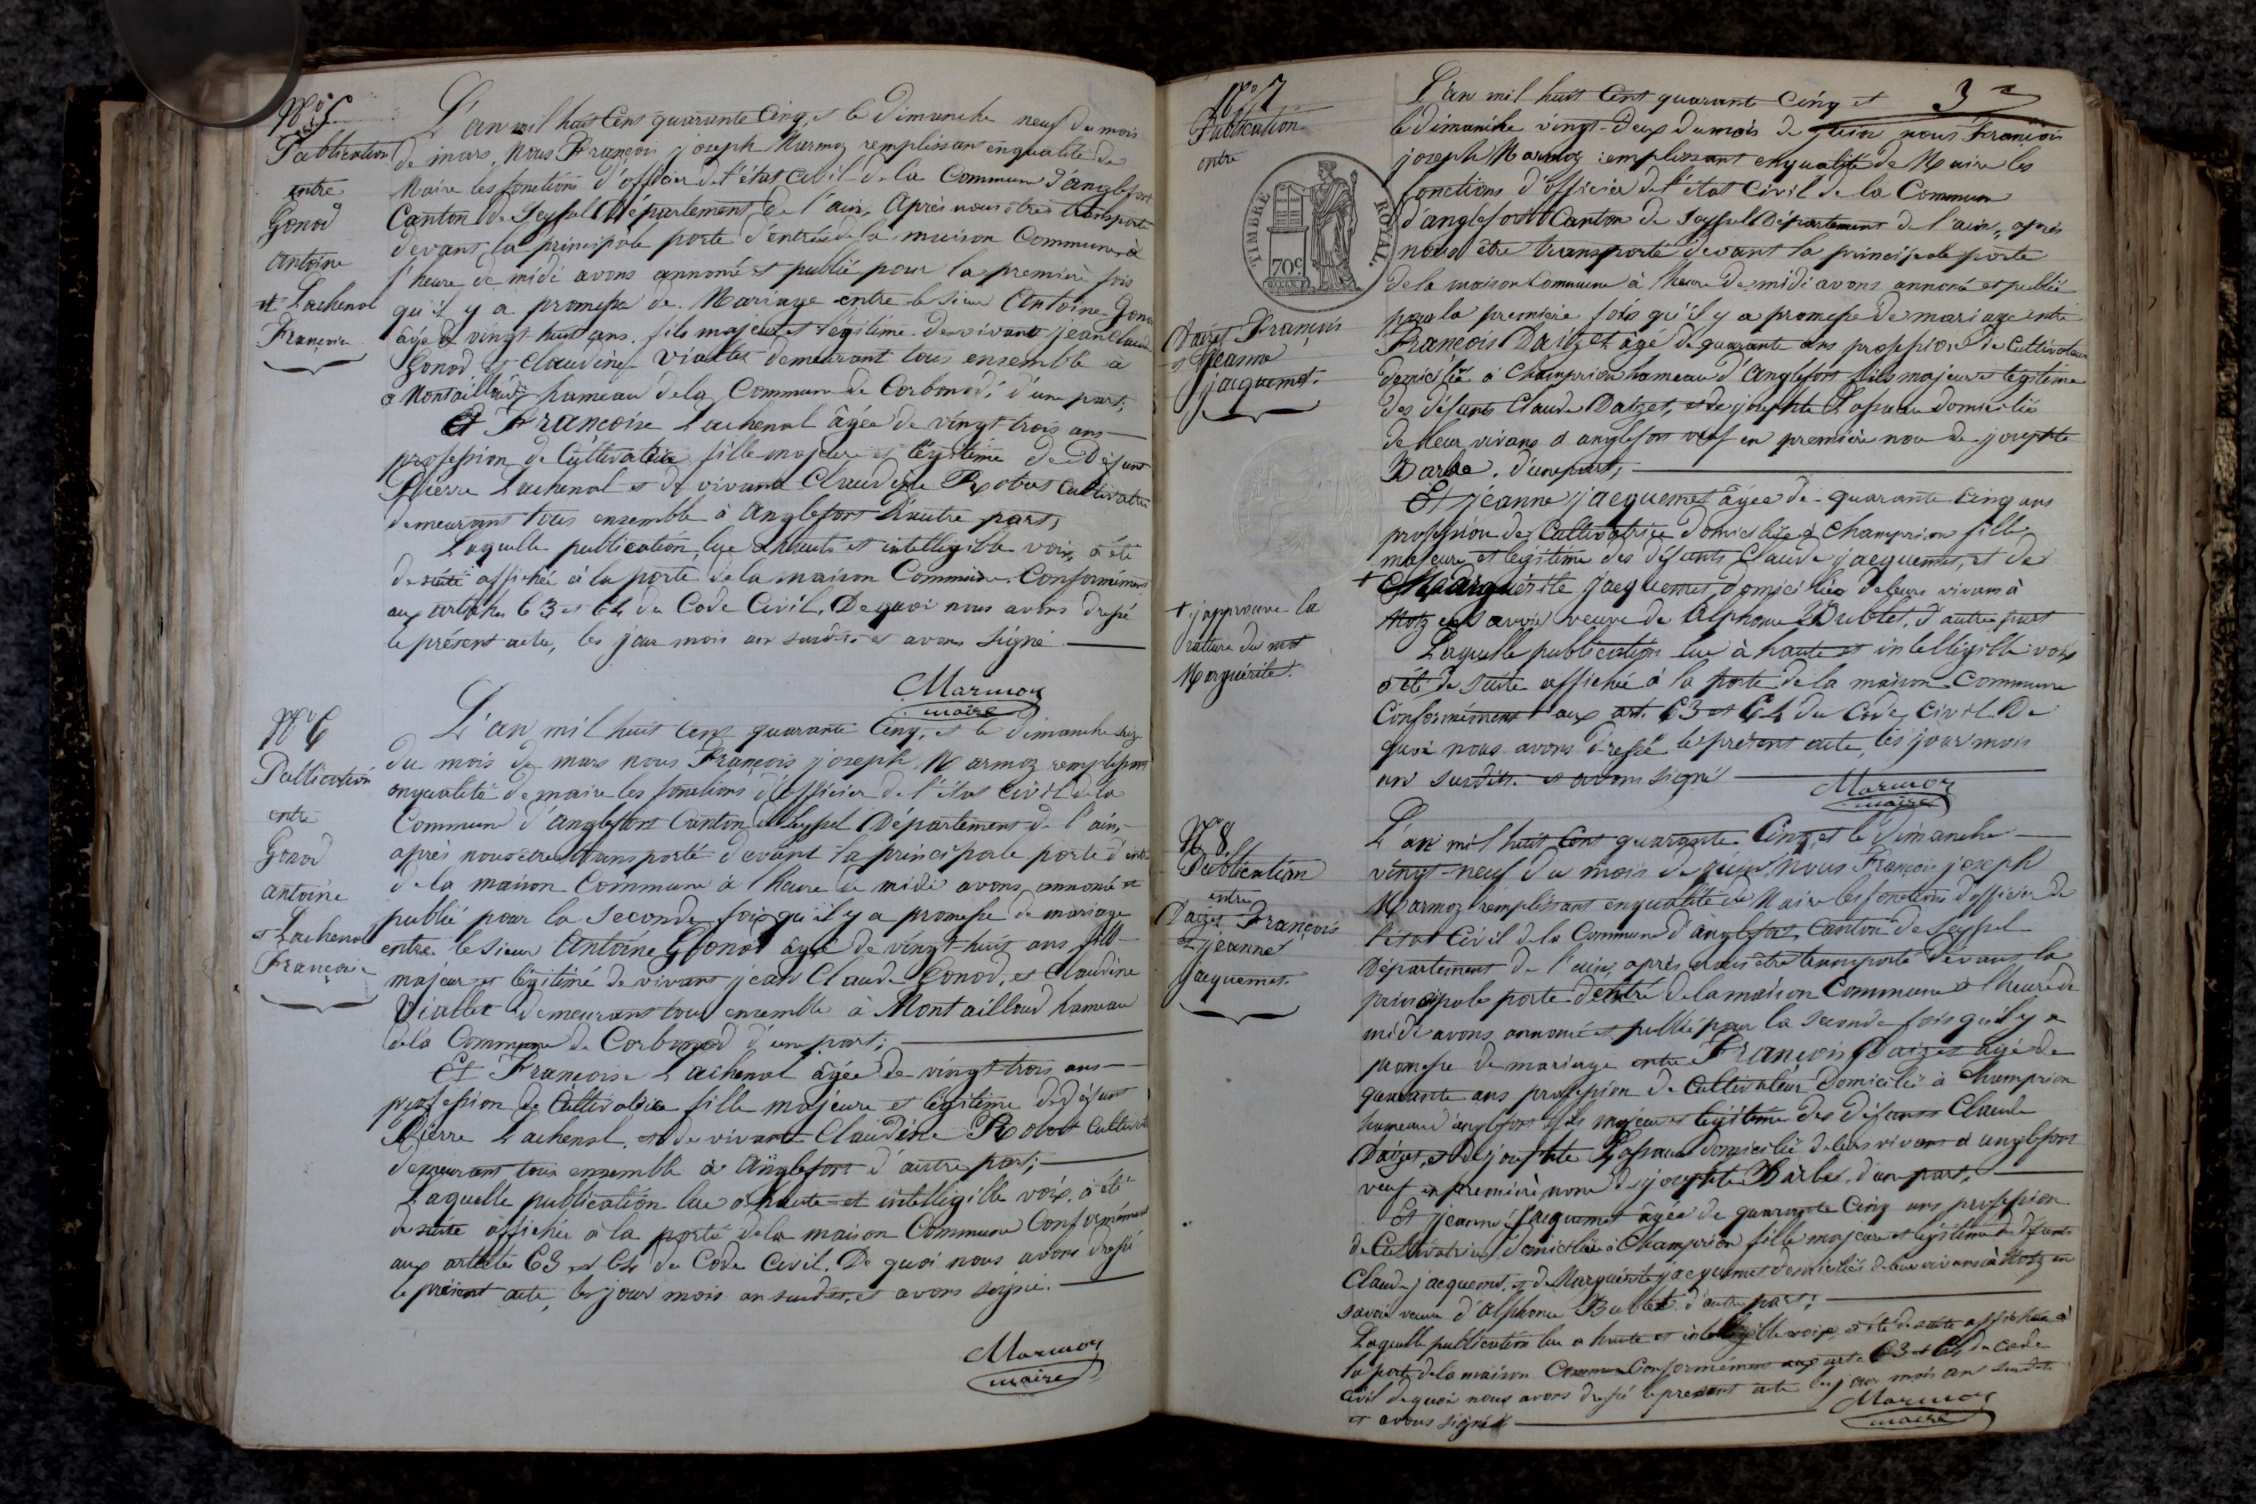 N° 5
Publication
entre
Gonod
antoine
et Lachenal
Françoise
L'an mil huit Cent quarante Cinq, et le Dimanche neuf du mois
de mars, Nous François joseph Marmoz remplissant enqualité de
Maire les fonctions d'officier de l'état Civil de la Commune d'anglefort
Canton de Seyssel Département de l'ain, Après nous être transporté
devant la principale porte d'entrée de la maison Commune, à
l'heure de midi avons annoncé et publié pour la première fois
qu'il y a promesse de Mariage entre le sieur Antoine Gonod
âgé de vingt huit ans, fils majeur et légitime de vivant jean Claude
Gonod et Claudine Viallet demeurant tous ensemble à
Montailloud hameau de la Commune de Corbonod, d'une part,
Et Françoise Lachenal âgée de vingt trois ans
profession de Cultivatrice fille majeure et légitime de Défunt
Pierre Lachenal et de vivant Claudine Robert Cultivatrice
demeurant tous ensemble à Anglefort d'autre part,
Laquelle publication lue à haute et intelligible voix, a été
de suite affichée à la porte de la maison Commune Conformément
aux articles 63 et 64 du Code Civil. De quoi nous avons dressé
le présent acte, les jour mois an susdits et avons signé
Marmoz
maire
N° 6
Publication
entre
Gonod
antoine
et Lachenal
Françoise
L'an mil huit Cent quarante Cinq, et le dimanche seize
du mois de mars nous François joseph Marmoz remplissant
enqualité de maire les fonctions d'officier de l'état Civil de la
Commune d'anglefort Canton de Seyssel Département de l'ain,
après nous être transporté devant la principale porte d'entrée
de la maison Commune à l'heure de midi avons annoncé et
publié pour la seconde fois qu'il y a promesse de mariage
entre le sieur Antoine Gonod âgé de vingt-huit ans fils
majeur et légitime de vivant jean Claude Gonod, et Claudine
Viallet demeurant tous ensemble à Montailloud hameau
de la Commune de Corbonod d'une part;
Et Françoise Lachenal âgée de vingt trois ans
profession de Cultivatrice fille majeure et légitime de défunt
Pierre Lachenal et de vivant Claudine Robert Cultivatrice
demeurant tous ensemble à Anglefort d'autre part;
Laquelle publication lue à haute et intelligible voix, a été
de suite affichée à la porte de la maison Commune Conformément
aux articles 63 et 64 du Code Civil. De quoi nous avons dressé
le présent acte, les jour mois an susdits, et avons signé.
Marmoz
maire
3
N° 7
Publication
entre
Daizet François
et jeanne
jacquemet.
TIMBRE ROYAL
70c
+ j'approuve la
rature du mot
Marguérite.
L'an mil huit Cent quarante Cinq et
le dimanche vingt-deux du mois de juin nous François
joseph Marmoz remplissant enqualité de Maire les
fonctions d'officier de l'état Civil de la Commune
d'anglefort Canton de Seyssel Département de l'ain, après
nous être transporté devant la principale porte
de la maison Commune à l'heure de midi avons annoncé et publié
pour la première fois qu'il y a promesse de mariage entre
François Daizet âgé de quarante ans profession de Cultivateur
domicilié à Champrion hameau d'Anglefort fils majeur et légitime
des défunts Claude Daizet, et de josephte domiciliés
de leur vivant à anglefort veuf en première noce de josephte
Barbe. d'une part;
Et jeanne jacquemet âgée de quarante cinq ans
profession de Cultivatrice domiciliée à Champrion fille
majeure et légitime des défunts Claude jacquemet, et de
+ Marguérite jacquemet domiciliés de leur vivant à
Motz en Savoie veuve de Alphonse Bublet, d'autre part
Laquelle publication lue à haute et intelligible voix
a été de suite affichée à la porte de la maison Commune
Conformément aux art. 63 et 64 du Code Civil. De
quoi nous avons dressé le présent acte, les jour mois
an susdits et avons signé
Marmoz
maire
N° 8.
Publication
entre
Daizet François
et jeanne
jacquemet.
L'an mil huit Cent quarante Cinq, et le dimanche
vingt-neuf du mois de juin nous François joseph
Marmoz remplissant enqualité de Maire les fonctions d'officier de
l'état Civil de la Commune d'anglefort, Canton de Seyssel
Département de l'ain, après nous être transporté devant la
principale porte d'entrée de la maison Commune à l'heure de
midi avons annoncé et publié pour la seconde fois qu'il y a
promesse de mariage entre François Daizet âgé de
quarante ans profession de Cultivateur domicilié à Champrion
hameau d'anglefort fils majeur et légitime des défunts Claude
Daizet, et de josephte domiciliés de leur vivant à anglefort
veuf en première noce de josephte Barbe. d'une part,
Et jeanne jacquemet âgée de quarante Cinq ans profession
de Cultivatrice domiciliée à Champrion fille majeure et légitime de défunts
Claude jacquemet, et de Marguérite jacquemet domiciliés de leur vivant à Motz en
Savoie veuve d'alphonse Bublet. d'autre part;
Laquelle publication lue à haute et intelligible voix, a été de suite affichée à
la porte de la maison Commune Conformément aux art. 63 et 64 du Code
Civil de quoi nous avons dressé le présent acte les jour mois an susdits
et avons signé
Marmoz
maire